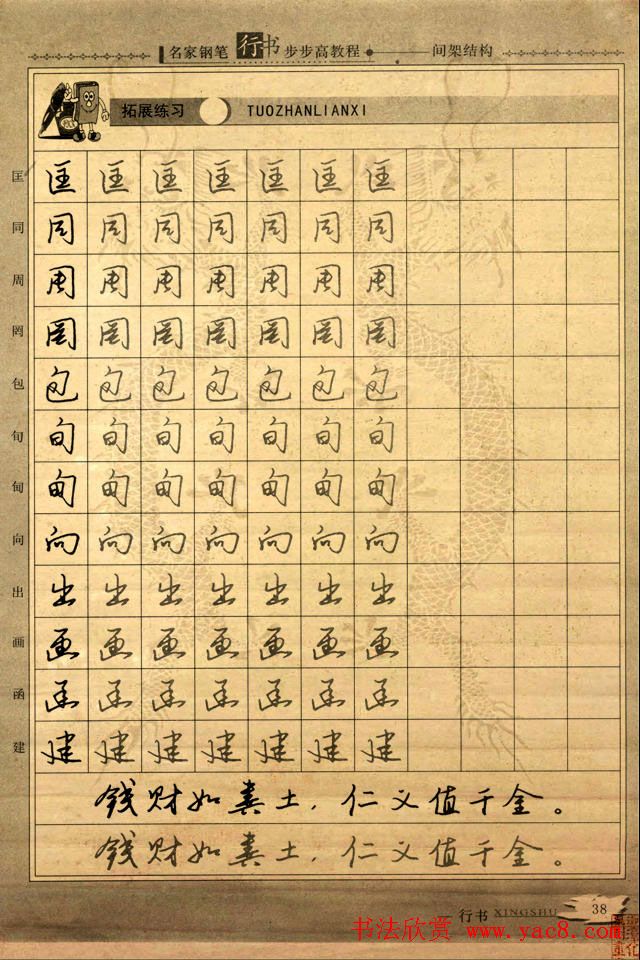 名家钢笔行书步步高教程 间架结构
拓展练习 TUOZHANLIANXI
匡 匡 匡 匡 匡 匡 匡 匡
同 同 同 同 同 同 同 同
周 周 周 周 周 周 周 周
罔 罔 罔 罔 罔 罔 罔 罔
包 包 包 包 包 包 包 包
旬 旬 旬 旬 旬 旬 旬 旬
甸 甸 甸 甸 甸 甸 甸 甸
向 向 向 向 向 向 向 向
出 出 出 出 出 出 出 出
画 画 画 画 画 画 画 画
函 函 函 函 函 函 函 函
建 建 建 建 建 建 建 建
钱财如粪土，仁义值千金。
钱财如粪土，仁义值千金。
行书 XINGSHU 38
书法欣赏 www.yac8.com